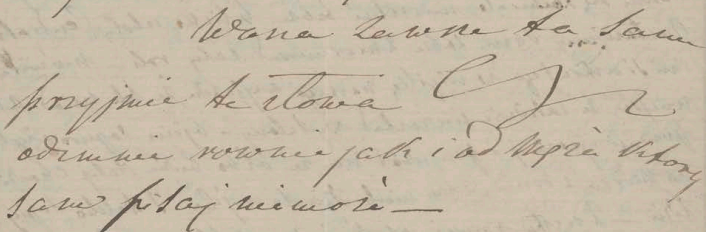 Wasza zawsze ta sama
przyjmie te słowa
odemnie rownie jak i od Męża ktory
sam pisać niemoże —